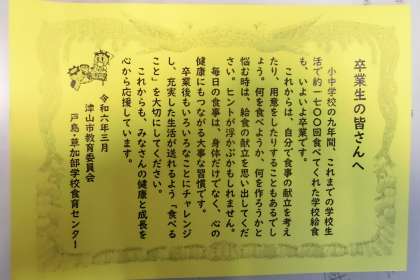 卒業生の皆さんへ
小中学校の九年間、これまでの学校生
活で約一七〇〇回食べてくれた学校給食
も、いよいよ卒業です。
これからは、自分で食事の献立を考え
たり、用意をしたりすることもあるでし
ょう。何を食べようか、何を作ろうかと
悩む時は、給食の献立を思い出してくだ
さい。ヒントが浮かぶかもしれません。
毎日の食事は、身体だけでなく、心の
健康にもつながる大事な習慣です。
卒業後もいろいろなことにチャレンジ
し、充実した生活が送れるよう「食べる
こと」を大切にしてください。
これからも、みなさんの健康と成長を
心から応援しています。
令和六年三月
津山市教育委員会
戸島・草加部学校食育センター